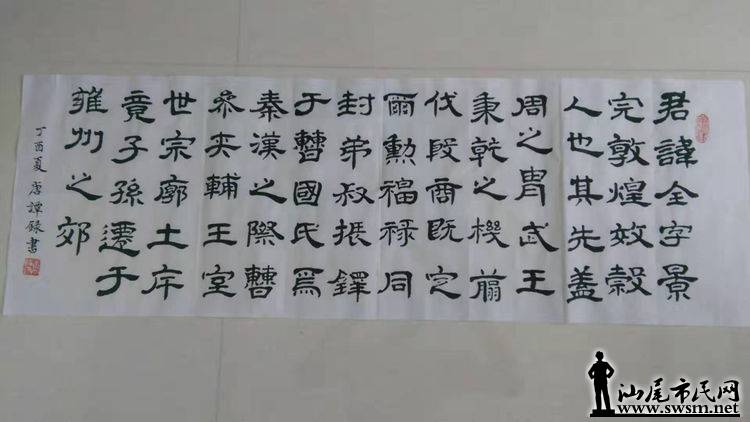 君諱全字景
完敦煌效穀
人也其先蓋
周之胄武王
秉乾之機翦
伐殷商既定
爾勳福禄同
封弟叔振鐸
于曹國氏焉
秦漢之際曹
參夾輔王室
世宗廓土斥
竟子孫遷于
雍州之郊
丁酉夏 唐譚録書
汕尾市民网
www.swsm.net